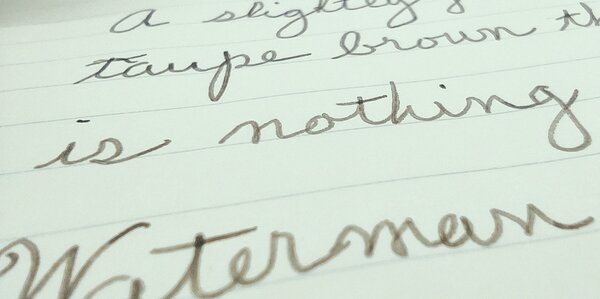 a slightly
taupe brown
is nothing
Waterman